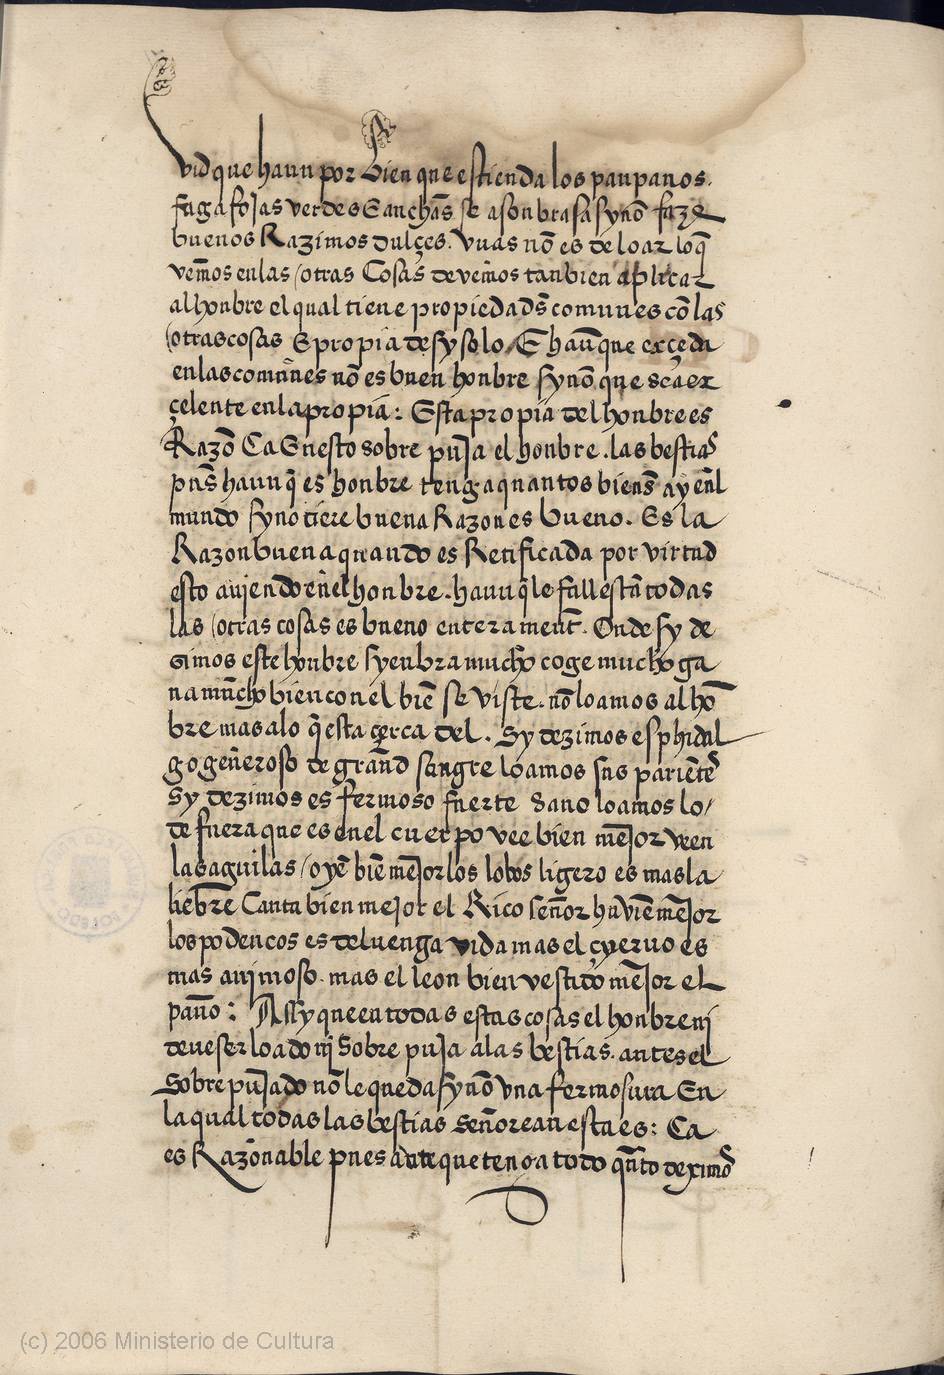 vid que haun por bien que estienda los panpanos.
faga fojas verdes E anchas se a sonbra sa syno faze
buenos Razimos dulçes. vuas no es de loar loq̄
vemos en las otras Cosas devemos tanbien aplicar
al honbre el qual tiene propiedads comunes cō las
otras cosas E propia de sy solo / E haūque exçeda
en las comunes nō es buen honbre synō que sea ex
çelente en la propia : Esta propia del honbre es
Razō Ca En esto sobre puja el honbre . las bestias
pus haun q̄ es honbre tenga quantos biens ay enl
mundo syno tiene buena Razon es bueno . Es la
Razon buena quando es Retificada por virtud
esto aujendo enel honbre . haun q̄ le fallestā todas
las otras cosas es bueno enteramenť . Onde sy de
zimos este honbre syenbra mucho coge mucho ga
na mūcho bien con el biē se viste . nō loamos al hō
bre mas a lo q̄ esta çerca del . Sy dezimos es phidal
go generoso de grand sangre loamos sus parientes
sy dezimos es fermoso fuerte sano loamos lo /
de fuera que es enel cuerpo vee bien mējor veen
las aguilas / oyē biē mējor los lobos ligero es mas la
liebre Canta bien mejor el Rico señor ha viē mējor
los podencos es de luenga vida mas el çyeruo es
mas animoso . mas el leon bien vestido mējor el
paño : Assy que en todas estas cosas el honbre nj
deve ser loado nj Sobre puja a las bestias . antes el
sobre pujado nō le queda synō vna fermosura En
la qual todas las bestias señorean esta es : Ca
es Razonable pues dante que tenga todo q̄nto deximos
(c) 2006 Ministerio de Cultura